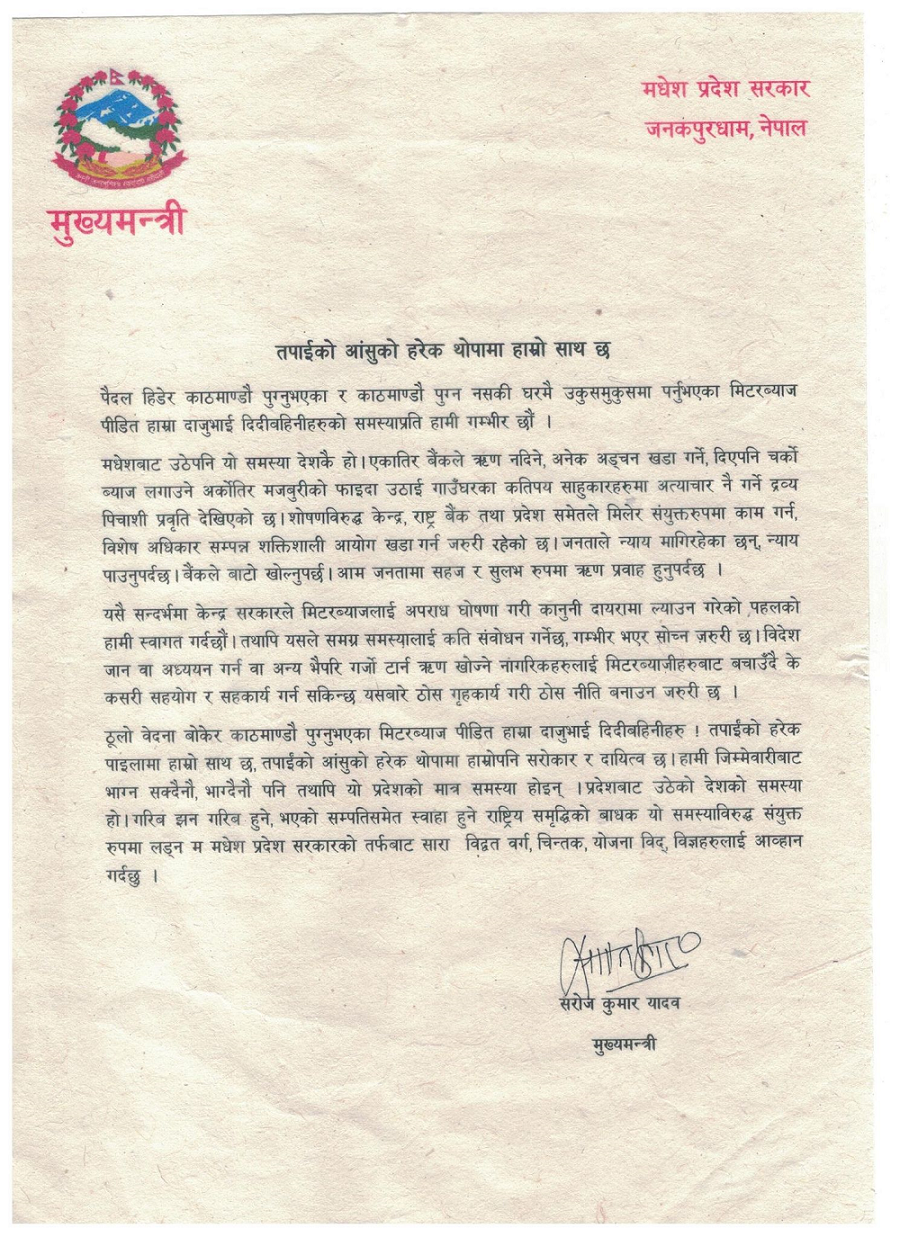 मधेश प्रदेश सरकार
जनकपुरधाम, नेपाल
मुख्यमन्त्री
तपाईको आंसुको हरेक थोपामा हाम्रो साथ छ
पैदल हिडेर काठमाण्डौ पुग्नुभएका र काठमाण्डौ पुग्न नसकी घरमै उकुसमुकुसमा पर्नुभएका मिटरब्याज
पीडित हाम्रा दाजुभाई दिदीवहिनीहरुको समस्याप्रति हामी गम्भीर छौं ।
मधेशबाट उठेपनि यो समस्या देशकै हो। एकातिर बैंकले ऋण नदिने, अनेक अड्चन खडा गर्ने, दिएपनि चर्को
ब्याज लगाउने अर्कोतिर मजबुरीको फाइदा उठाई गाउँघरका कतिपय साहुकारहरुमा अत्याचार नै गर्ने द्रव्य
पिचाशी प्रवृति देखिएको छ। शोषणविरुद्ध केन्द्र, राष्ट्र बैंक तथा प्रदेश समेतले मिलेर संयुक्तरुपमा काम गर्न,
विशेष अधिकार सम्पन्न शक्तिशाली आयोग खडा गर्न जरुरी रहेको छ। जनताले न्याय मागिरहेका छन्, न्याय
पाउनुपर्दछ। बैंकले बाटो खोल्नुपर्छ। आम जनतामा सहज र सुलभ रुपमा ऋण प्रवाह हुनुपर्दछ ।
यसै सन्दर्भमा केन्द्र सरकारले मिटरब्याजलाई अपराध घोषणा गरी कानुनी दायरामा ल्याउन गरेको पहलको
हामी स्वागत गर्दछौं। तथापि यसले समग्र समस्यालाई कति संवोधन गर्नेछ, गम्भीर भएर सोच्न ज़रुरी छ। विदेश
जान वा अध्ययन गर्न वा अन्य भैपरि गर्जो टार्न ऋण खोज्ने नागरिकहरुलाई मिटरब्याजीहरुबाट बचाउँदै के
कसरी सहयोग र सहकार्य गर्न सकिन्छ यसबारे ठोस गृहकार्य गरी ठोस नीति बनाउन जरुरी छ ।
ठूलो वेदना बोकेर काठमाण्डौ पुग्नुभएका मिटरब्याज पीडित हाम्रा दाजुभाई दिदीवहिनीहरु ! तपाईंको हरेक
पाइलामा हाम्रो साथ छ, तपाईंको आंसुको हरेक थोपामा हाम्रोपनि सरोकार र दायित्व छ। हामी जिम्मेवारीबाट
भाग्न सक्दैनौ, भाग्दैनौ पनि तथापि यो प्रदेशको मात्र समस्या होइन् । प्रदेशबाट उठेको देशको समस्या
हो। गरिब झन गरिब हुने, भएको सम्पतिसमेत स्वाहा हुने राष्ट्रिय समृद्धिको बाधक यो समस्याविरुद्ध संयुक्त
रुपमा लड्न म मधेश प्रदेश सरकारको तर्फबाट सारा विद्वत वर्ग, चिन्तक, योजना विद्, विज्ञहरुलाई आव्हान
गर्दछु ।
सरोज कुमार यादव
मुख्यमन्त्री